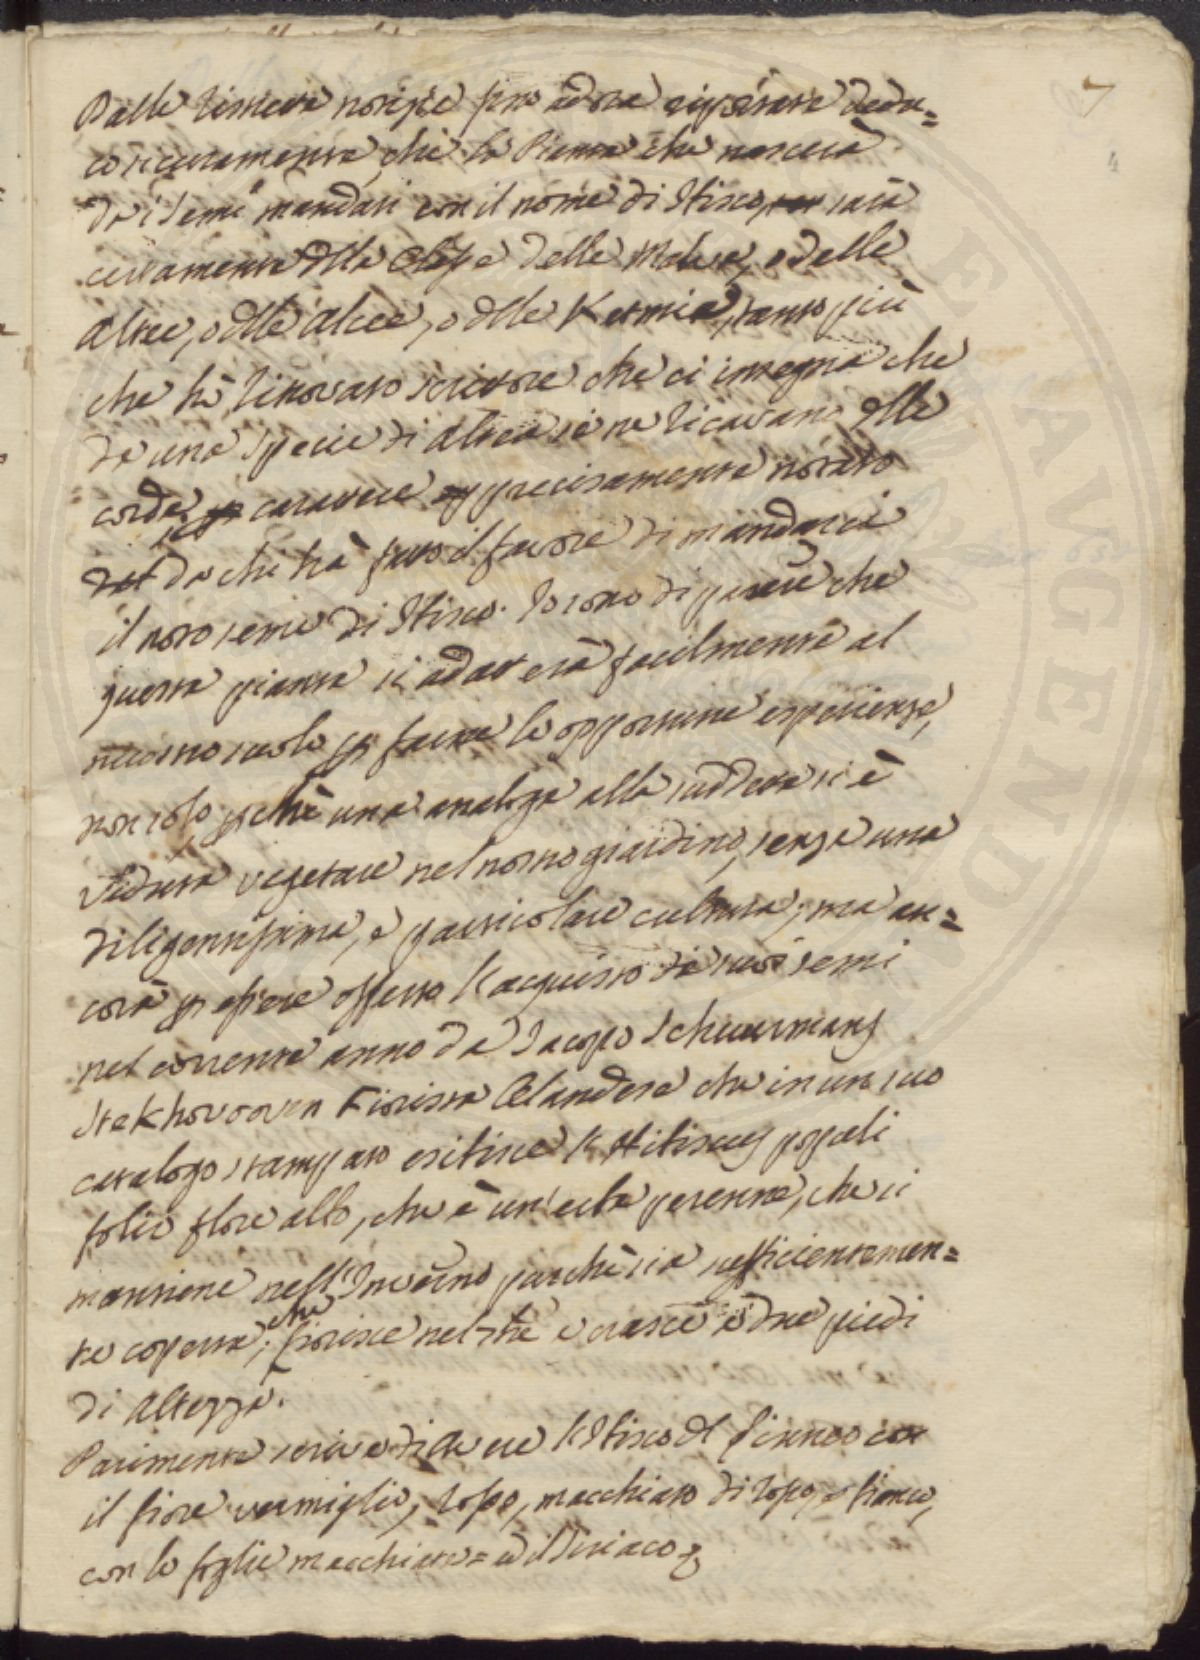 7
4
Dalle ricevute notizie fino ad ora riportate dedu=
co sicuramente, che la Pianta che nascerà
da i semi mandati con il nome di Ibisco, sarà
certamente della Classe delle Malve, o delle
Altee, o delle Alcee, o delle Ketmie, tanto più
che hò ritrovato scrittore che ci insegna che
da una specie di Alcea se ne ricavano delle
corde, carattere precisamente notato
da chi hà fatto il favore di mandarci
il noto seme di Ibisco. Io sono di parere che
questa pianta si adatterà facilmente al
nostro suolo per farne le opportune esperienze,
non solo perchè una analoga alla suddetta si è
veduta vegetare nel nostro giardino, senza una
diligentissima, e particolare cultura; ma an=
cora per essere offerto l'acquisto di suoi semi
nel corrente anno da Jacopo Schuurmans
Stekhovoven Fiorista Olandese che in un suo
catalogo stampato esibisce l'Hibiscus populi
folio flore albo, che è un'erba perenne, che si
mantiene nell'Inverno purchè sia sufficientemen=
te coperta; che fiorisce nel e cresce a due piedi
di Altezza.
Parimente l'Ibisco del Linneo con
il fiore vermiglio, rosso, macchiato di rosso, e bianco,
con le foglie macchiate = e il Siriaco